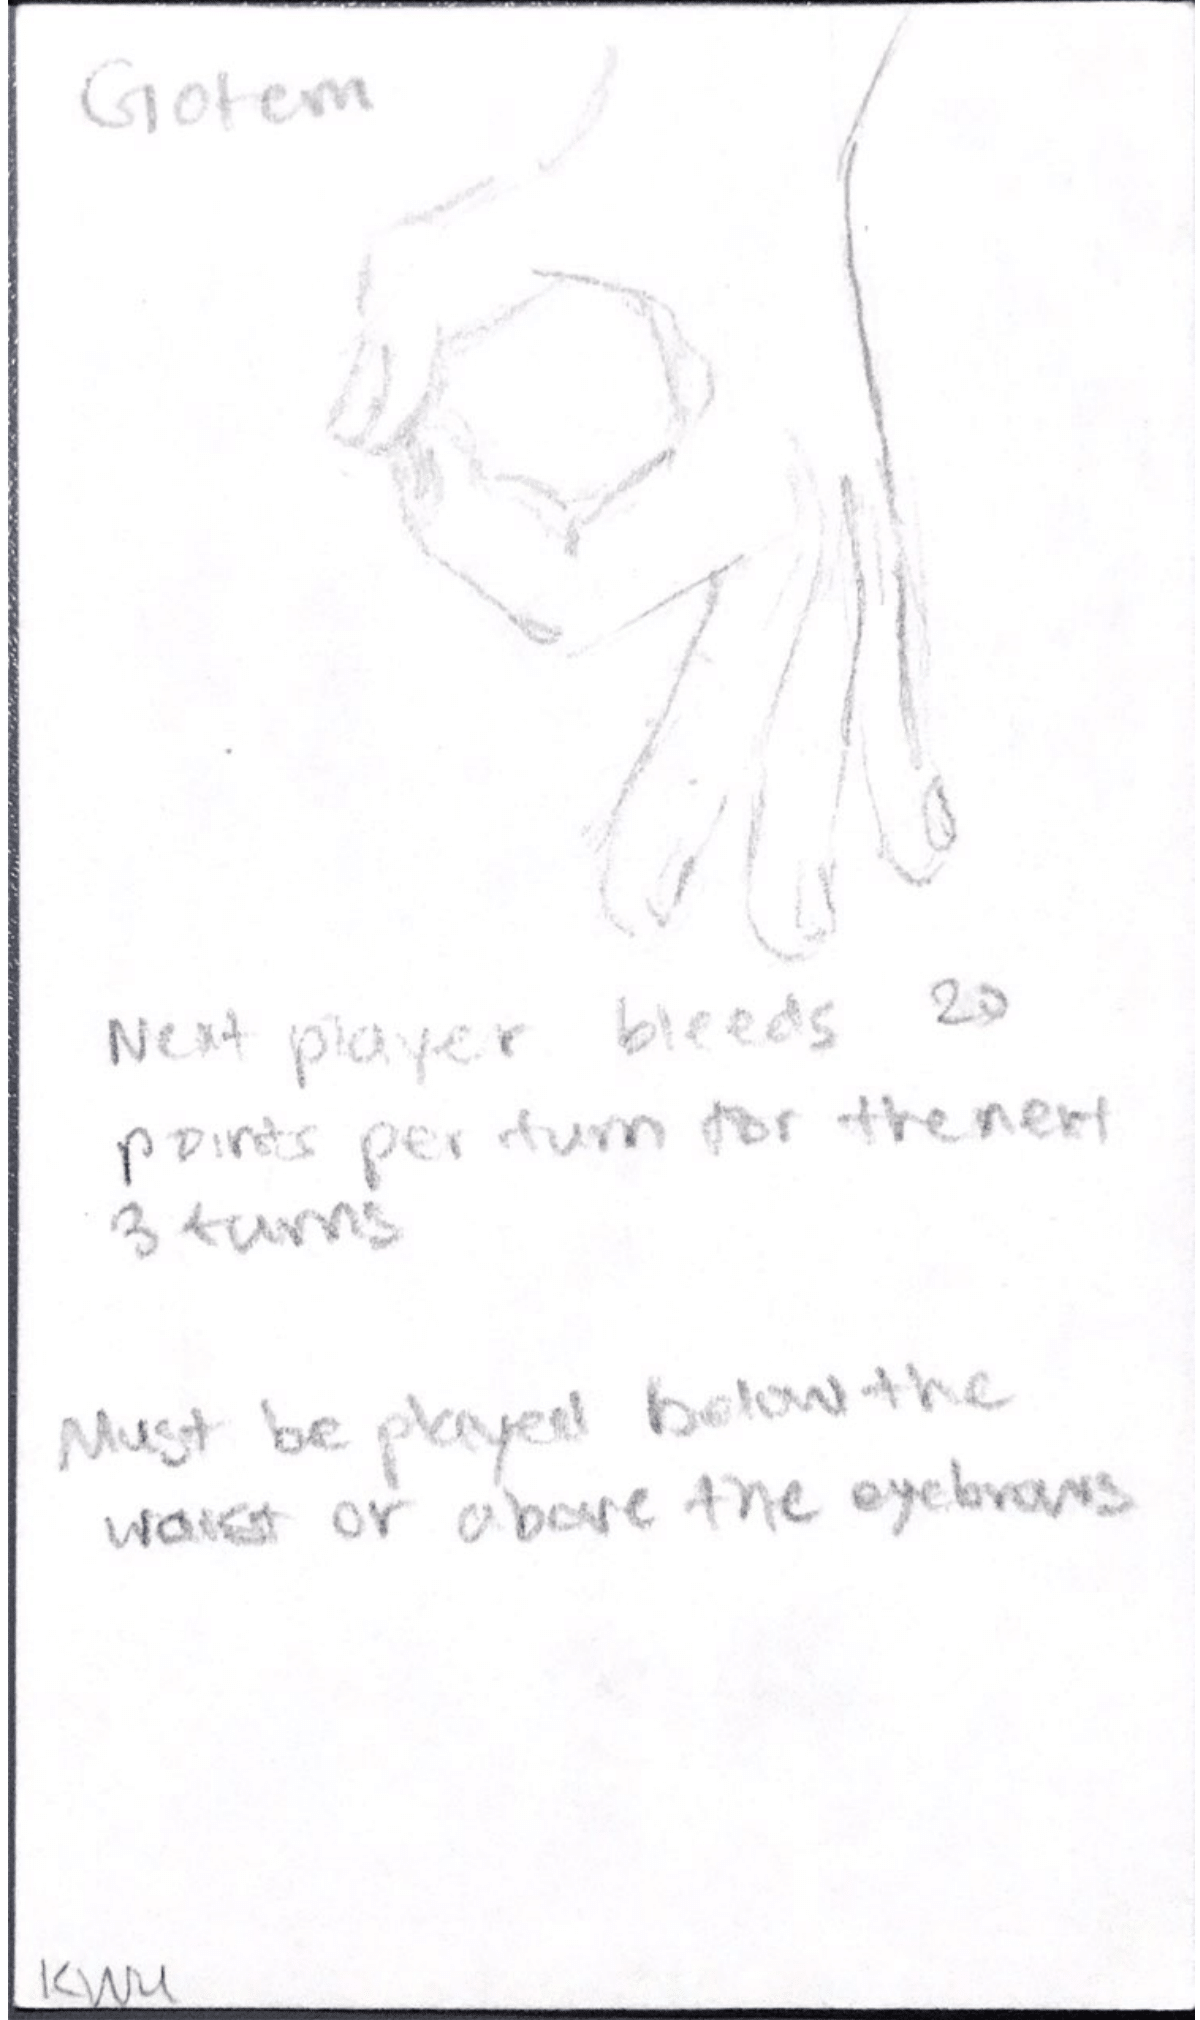 Gotem
Next player bleeds 20
points per turn for the next
3 turns
Must be played below the
waist or above the eyebrows
KWU